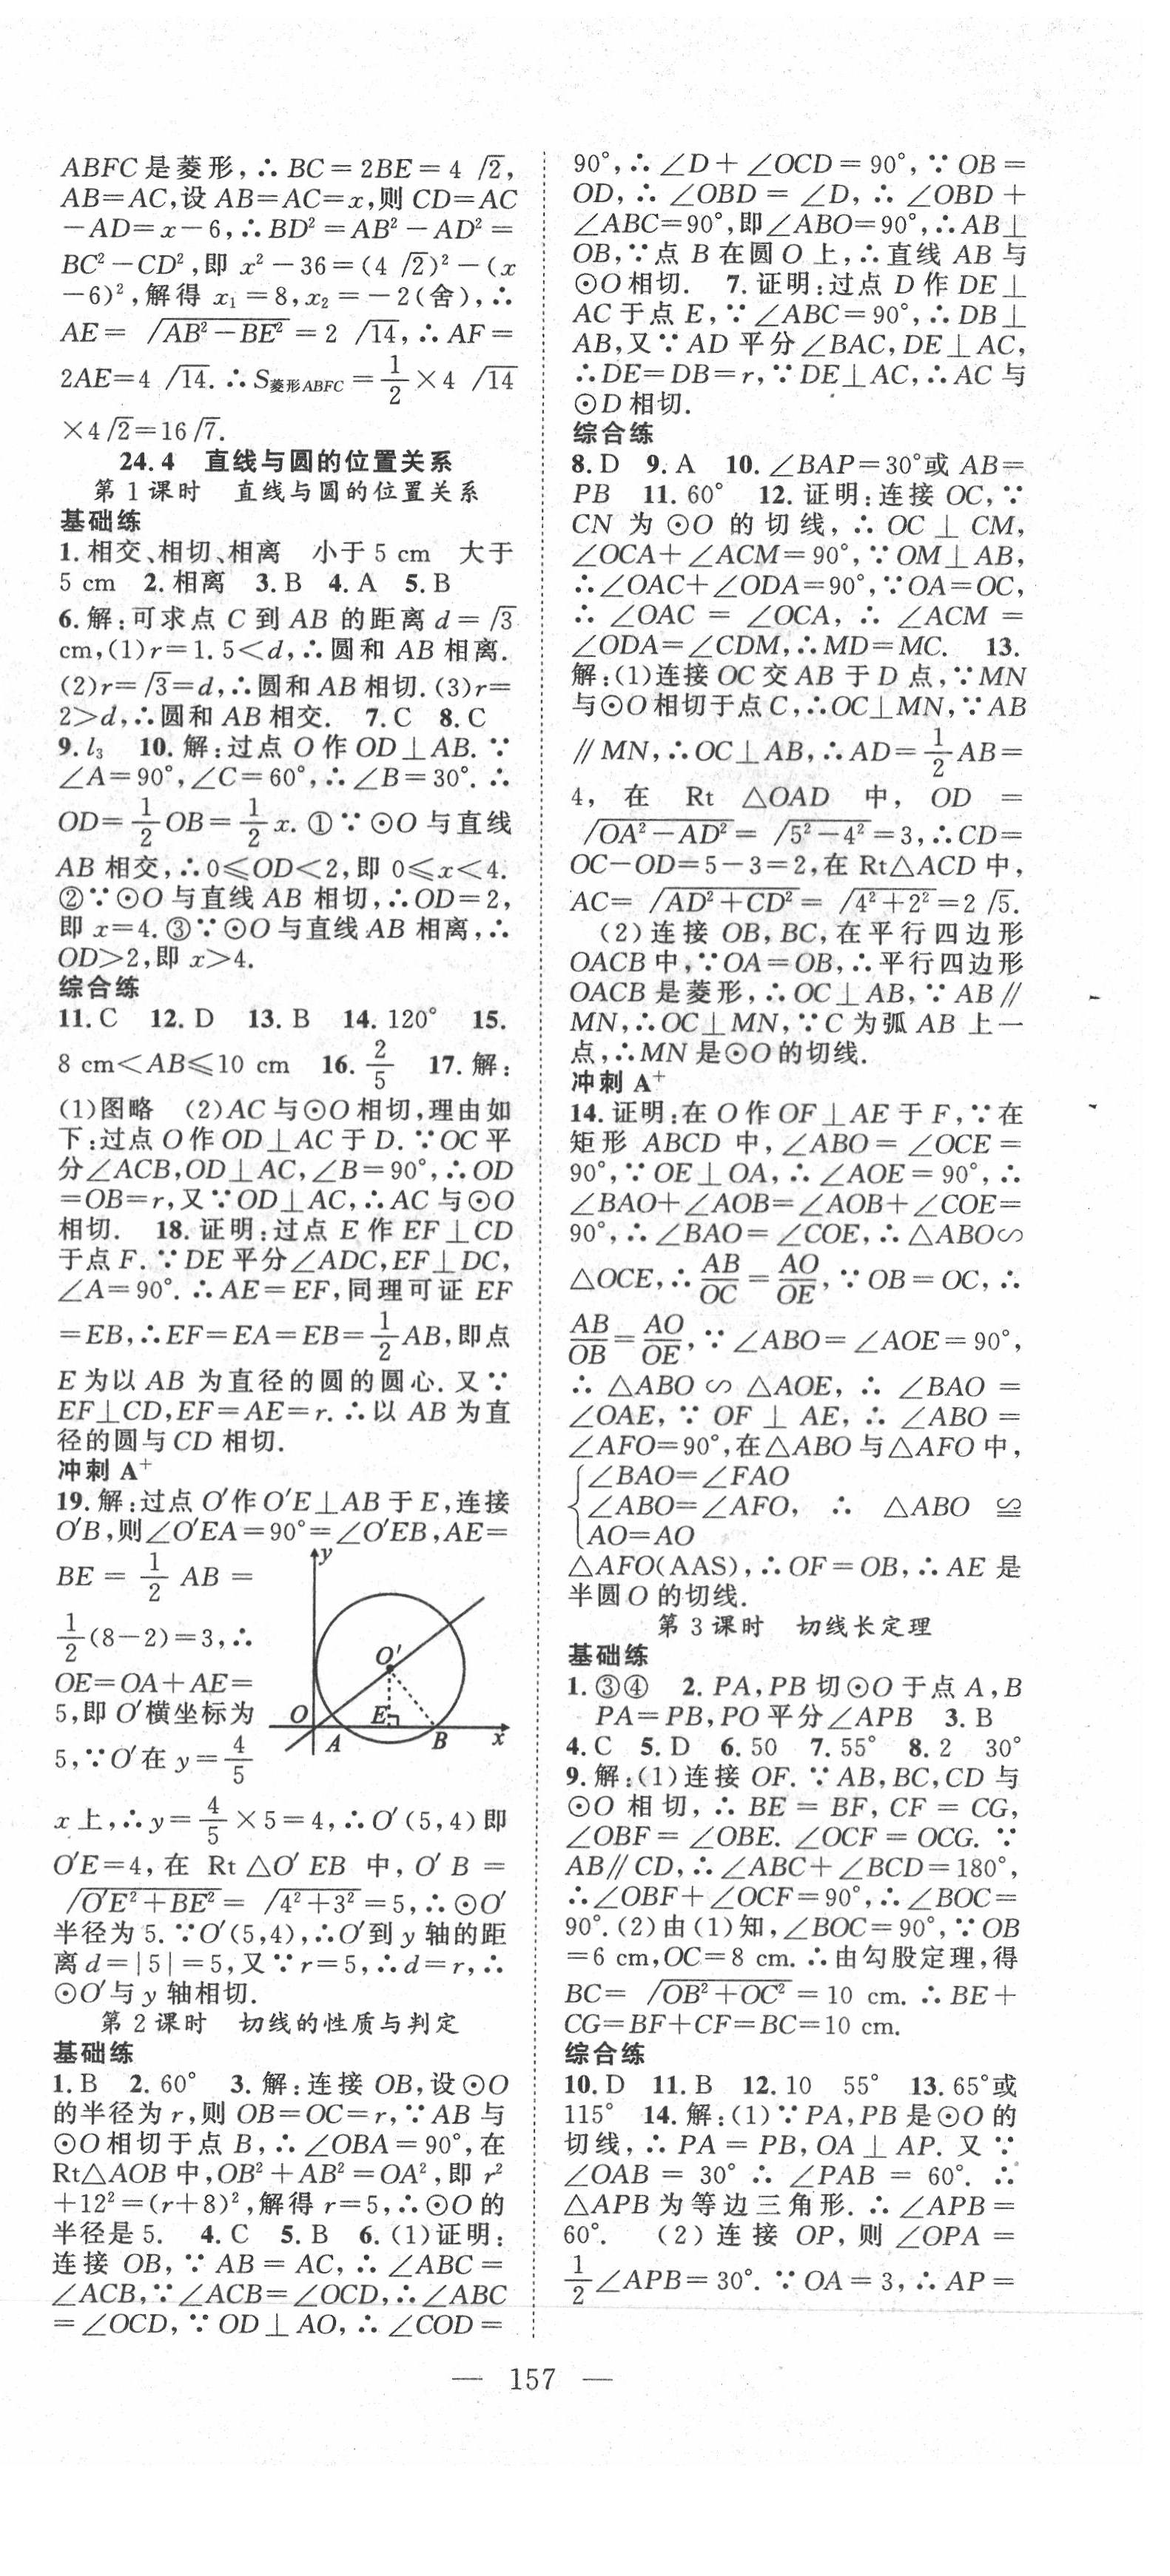 ABFC是菱形,∴BC=2BE=4√2,
AB=AC,设AB=AC=x,则CD=AC
-AD=x-6,∴BD²=AB²-AD²=
BC²-CD²,即x²-36=(4√2)²-(x
-6)²,解得x₁=8,x₂=-2(舍),∴
AE=√(AB²-BE²)=2√14,∴AF=
2AE=4√14.∴S菱形ABFC=1/2×4√14
×4√2=16√7.
24.4 直线与圆的位置关系
第1课时 直线与圆的位置关系
基础练
1.相交、相切、相离 小于5 cm 大于
5 cm 2.相离 3.B 4.A 5.B
6.解:可求点C到AB的距离d=√3
cm,(1)r=1.5<d,∴圆和AB相离.
(2)r=√3=d,∴圆和AB相切.(3)r=
2>d,∴圆和AB相交. 7.C 8.C
9.l₃ 10.解:过点O作OD⊥AB.∵
∠A=90°,∠C=60°,∴∠B=30°.∴
OD=1/2OB=1/2x.①∵⊙O与直线
AB相交,∴0≤OD<2,即0≤x<4.
②∵⊙O与直线AB相切,∴OD=2,
即x=4.③∵⊙O与直线AB相离,∴
OD>2,即x>4.
综合练
11.C 12.D 13.B 14.120° 15.
8 cm<AB≤10 cm 16.2/5 17.解:
(1)图略 (2)AC与⊙O相切,理由如
下:过点O作OD⊥AC于D.∵OC平
分∠ACB,OD⊥AC,∠B=90°,∴OD
=OB=r,又∵OD⊥AC,∴AC与⊙O
相切. 18.证明:过点E作EF⊥CD
于点F.∵DE平分∠ADC,EF⊥DC,
∠A=90°.∴AE=EF,同理可证EF
=EB,∴EF=EA=EB=1/2AB,即点
E为以AB为直径的圆的圆心.又∵
EF⊥CD,EF=AE=r.∴以AB为直
径的圆与CD相切.
冲刺A⁺
19.解:过点O′作O′E⊥AB于E,连接
O′B,则∠O′EA=90°=∠O′EB,AE=
BE=1/2AB=
1/2(8-2)=3,∴
OE=OA+AE=
5,即O′横坐标为
5,∵O′在y=4/5
y
O′
O
E
A
B
x
x上,∴y=4/5×5=4,∴O′(5,4)即
O′E=4,在Rt△O′EB中,O′B=
√(O′E²+BE²)=√(4²+3²)=5,∴⊙O′
半径为5.∵O′(5,4),∴O′到y轴的距
离d=|5|=5,又∵r=5,∴d=r,∴
⊙O′与y轴相切.
第2课时 切线的性质与判定
基础练
1.B 2.60° 3.解:连接OB,设⊙O
的半径为r,则OB=OC=r,∵AB与
⊙O相切于点B,∴∠OBA=90°,在
Rt△AOB中,OB²+AB²=OA²,即r²
+12²=(r+8)²,解得r=5,∴⊙O的
半径是5. 4.C 5.B 6.(1)证明:
连接OB,∵AB=AC,∴∠ABC=
∠ACB,∵∠ACB=∠OCD,∴∠ABC
=∠OCD,∵OD⊥AO,∴∠COD=
90°,∴∠D+∠OCD=90°,∵OB=
OD,∴∠OBD=∠D,∴∠OBD+
∠ABC=90°,即∠ABO=90°,∴AB⊥
OB,∵点B在圆O上,∴直线AB与
⊙O相切. 7.证明:过点D作DE⊥
AC于点E,∵∠ABC=90°,∴DB⊥
AB,又∵AD平分∠BAC,DE⊥AC,
∴DE=DB=r,∵DE⊥AC,∴AC与
⊙D相切.
综合练
8.D 9.A 10.∠BAP=30°或AB=
PB 11.60° 12.证明:连接OC,∵
CN为⊙O的切线,∴OC⊥CM,
∠OCA+∠ACM=90°,∵OM⊥AB,
∴∠OAC+∠ODA=90°,∵OA=OC,
∴∠OAC=∠OCA,∴∠ACM=
∠ODA=∠CDM,∴MD=MC. 13.
解:(1)连接OC交AB于D点,∵MN
与⊙O相切于点C,∴OC⊥MN,∵AB
∥MN,∴OC⊥AB,∴AD=1/2AB=
4,在Rt△OAD中,OD=
√(OA²-AD²)=√(5²-4²)=3,∴CD=
OC-OD=5-3=2,在Rt△ACD中,
AC=√(AD²+CD²)=√(4²+2²)=2√5.
(2)连接OB,BC,在平行四边形
OACB中,∵OA=OB,∴平行四边形
OACB是菱形,∴OC⊥AB,∵AB∥
MN,∴OC⊥MN,∵C为弧AB上一
点,∴MN是⊙O的切线.
冲刺A⁺
14.证明:在O作OF⊥AE于F,∵在
矩形ABCD中,∠ABO=∠OCE=
90°,∵OE⊥OA,∴∠AOE=90°,∴
∠BAO+∠AOB=∠AOB+∠COE=
90°,∴∠BAO=∠COE,∴△ABO∽
△OCE,∴AB/OC=AO/OE,∵OB=OC,∴
AB/OB=AO/OE,∵∠ABO=∠AOE=90°,
∴△ABO∽△AOE,∴∠BAO=
∠OAE,∵OF⊥AE,∴∠ABO=
∠AFO=90°,在△ABO与△AFO中,
{∠BAO=∠FAO
∠ABO=∠AFO, ∴ △ABO ≌
AO=AO
△AFO(AAS),∴OF=OB,∴AE是
半圆O的切线.
第3课时 切线长定理
基础练
1.③④ 2.PA,PB切⊙O于点A,B
PA=PB,PO平分∠APB 3.B
4.C 5.D 6.50 7.55° 8.2 30°
9.解:(1)连接OF.∵AB,BC,CD与
⊙O相切,∴BE=BF,CF=CG,
∠OBF=∠OBE.∠OCF=OCG.∵
AB∥CD,∴∠ABC+∠BCD=180°,
∴∠OBF+∠OCF=90°,∴∠BOC=
90°.(2)由(1)知,∠BOC=90°,∵OB
=6 cm,OC=8 cm.∴由勾股定理,得
BC=√(OB²+OC²)=10 cm.∴BE+
CG=BF+CF=BC=10 cm.
综合练
10.D 11.B 12.10 55° 13.65°或
115° 14.解:(1)∵PA,PB是⊙O的
切线,∴PA=PB,OA⊥AP.又∵
∠OAB=30°∴∠PAB=60°.∴
△APB为等边三角形.∴∠APB=
60°. (2)连接OP,则∠OPA=
1/2∠APB=30°.∵OA=3,∴AP=
— 157 —